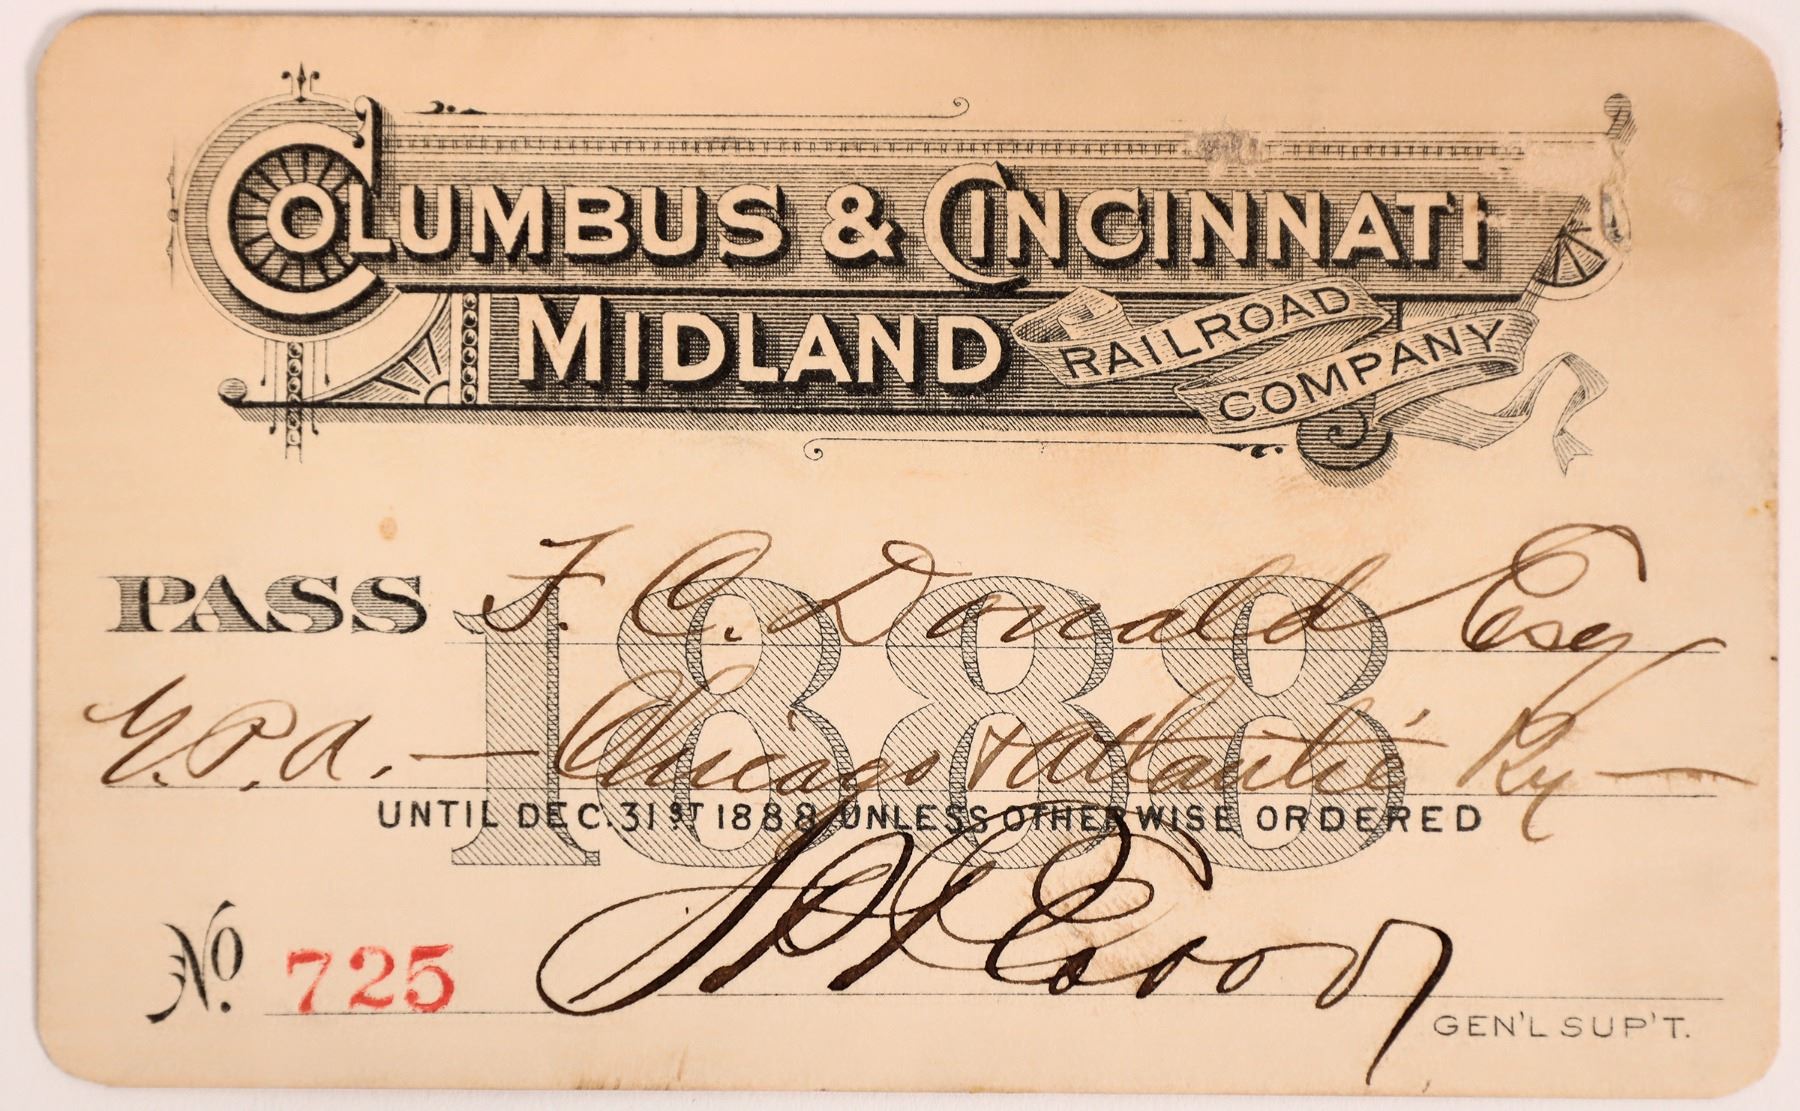 COLUMBUS & CINCINNATI
MIDLAND RAILROAD COMPANY
PASS F. C. Donald Esq
G.P.A. — Chicago & Atlantic Ry —
1888
UNTIL DEC. 31ST 1888 UNLESS OTHERWISE ORDERED
No. 725
GEN'L SUP'T.